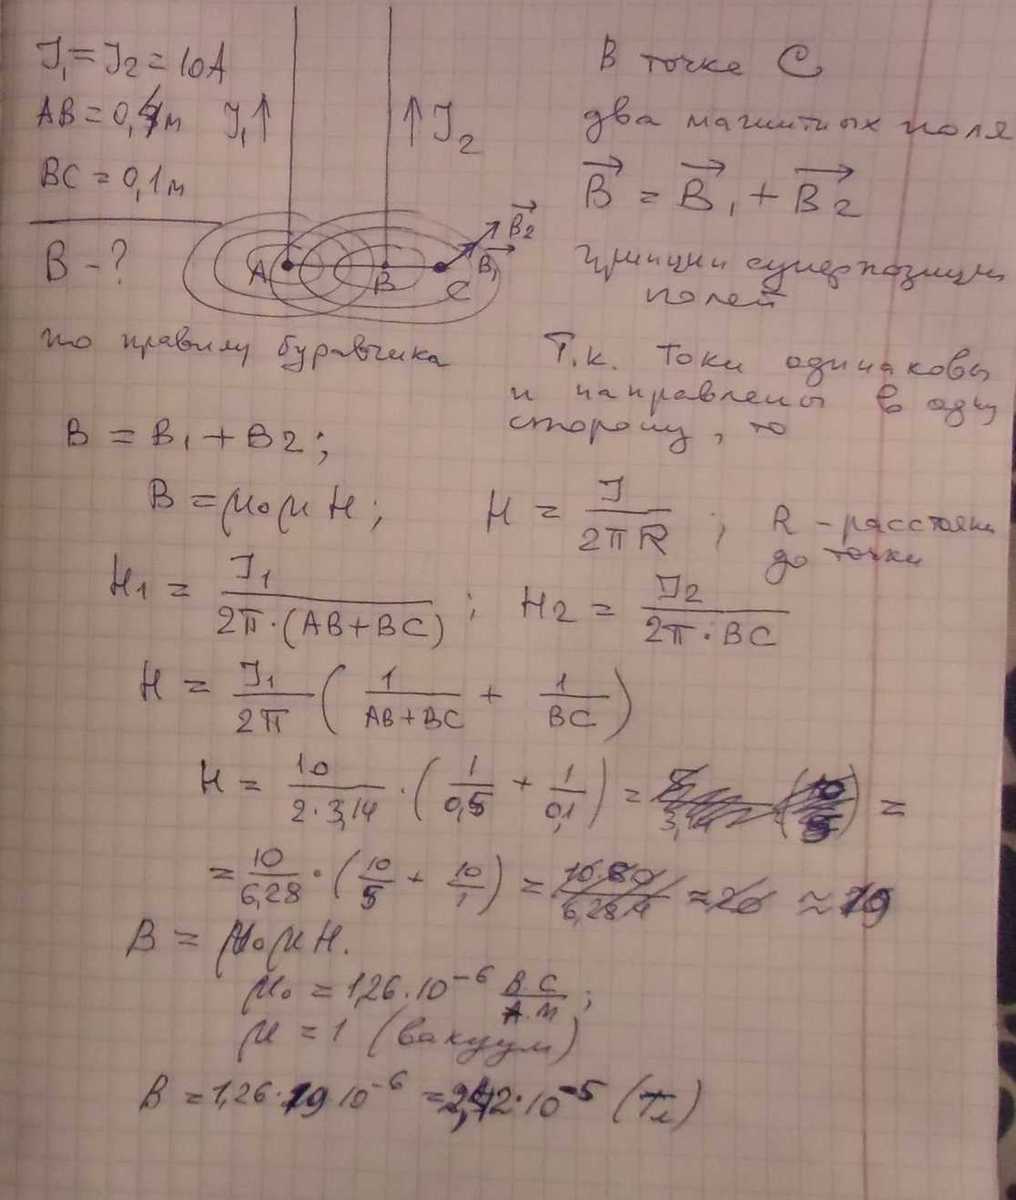 J₁ = J₂ = 10А
АВ = 0,4м
ВС = 0,1м
В - ?
J₁↑
↑J₂
A
B
C
B₂
B₁
В точке С
два магнитных поля
B = B₁ + B₂
принцип суперпозиции
полей
по правилу буравчика
Т.к. Токи одинаковы
и направлены в одну
сторону, то
B = B₁ + B₂;
B = μ₀μH; H = J / 2πR ; R - расстояни
до точки
H₁ = J₁ / 2π·(AB+BC) ; H₂ = J₂ / 2π·BC
H = J₁ / 2π (1 / AB+BC + 1 / BC)
H = 10 / 2·3,14 · (1 / 0,5 + 1 / 0,1) = =
= 10 / 6,28 · (10 / 5 + 10 / 1) = ≈ ≈ 19
B = μ₀μH.
μ₀ = 1,26·10⁻⁶ В С / А·м ;
μ = 1 (вакуум)
B = 1,26·19·10⁻⁶ = 2,42·10⁻⁵ (Тл)